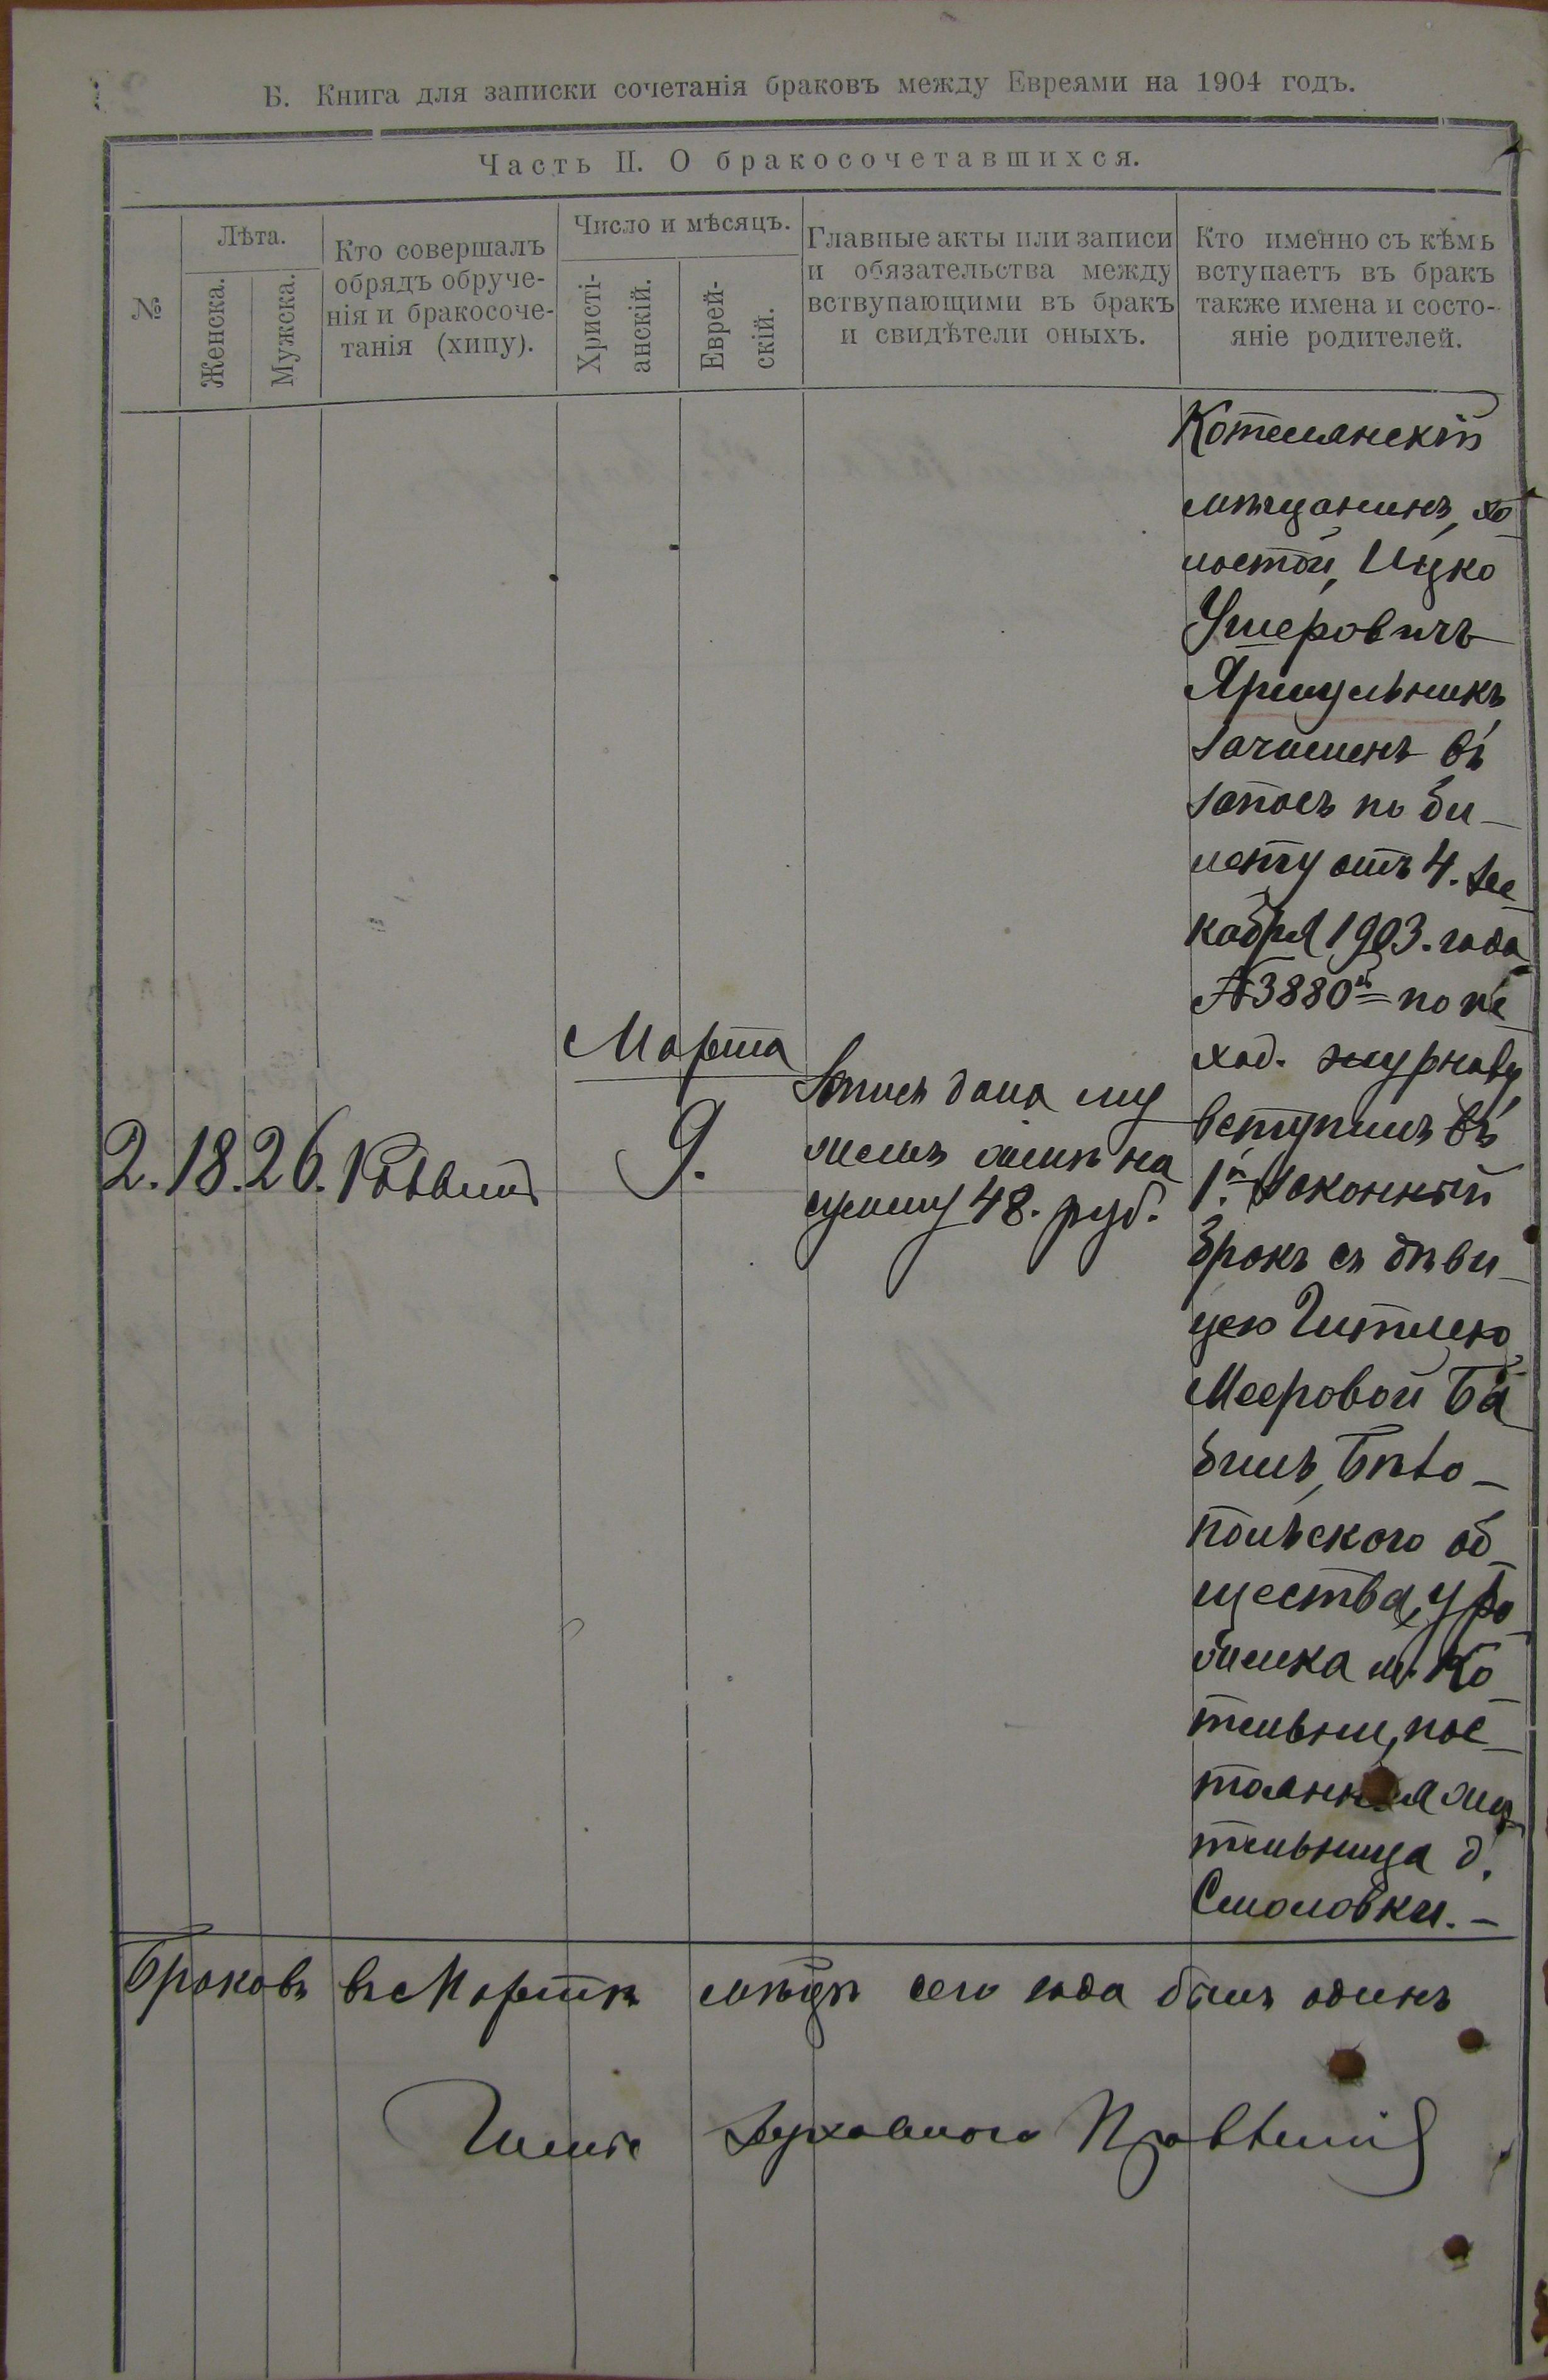 Б. Книга для записки сочетанія браковъ между Евреями на 1904 годъ.
Часть II. О бракосочетавшихся.
№
Лѣта.
Женска.
Мужска.
Кто совершалъ
обрядъ обруче-
нія и бракосоче-
танія (хипу).
Число и мѣсяцъ.
Христі-
анскій.
Еврей-
скій.
Главные акты или записи
и обязательства между
вствупающими въ бракъ
и свидѣтели оныхъ.
Кто именно съ кѣмъ
вступаетъ въ бракъ
также имена и состо-
яніе родителей.
2. 18. 26. Раввинъ
Марта
9.
Запись дана му
жемъ женѣ на
сумму 48. руб.
Котелянскій
мѣщанинъ, хо
лостой, Ицко
Ушеровичъ
Ярмульникъ
зачисленъ въ
запасъ по би-
лету отъ 4. Де
кабря 1903. года
№3880й по ис
ход. журналу
вступилъ въ
1й законный
бракъ съ дѣви-
цею Гитлею
Мееровой Ба
бичъ, Бѣло-
польского об
щества, уро
женка м. Ко
тельни, пос-
тоянная жи
тельница д.
Смоловки.-
Браковъ въ Мартѣ мѣсяцѣ сего года былъ одинъ
Члены Духовного Правленія